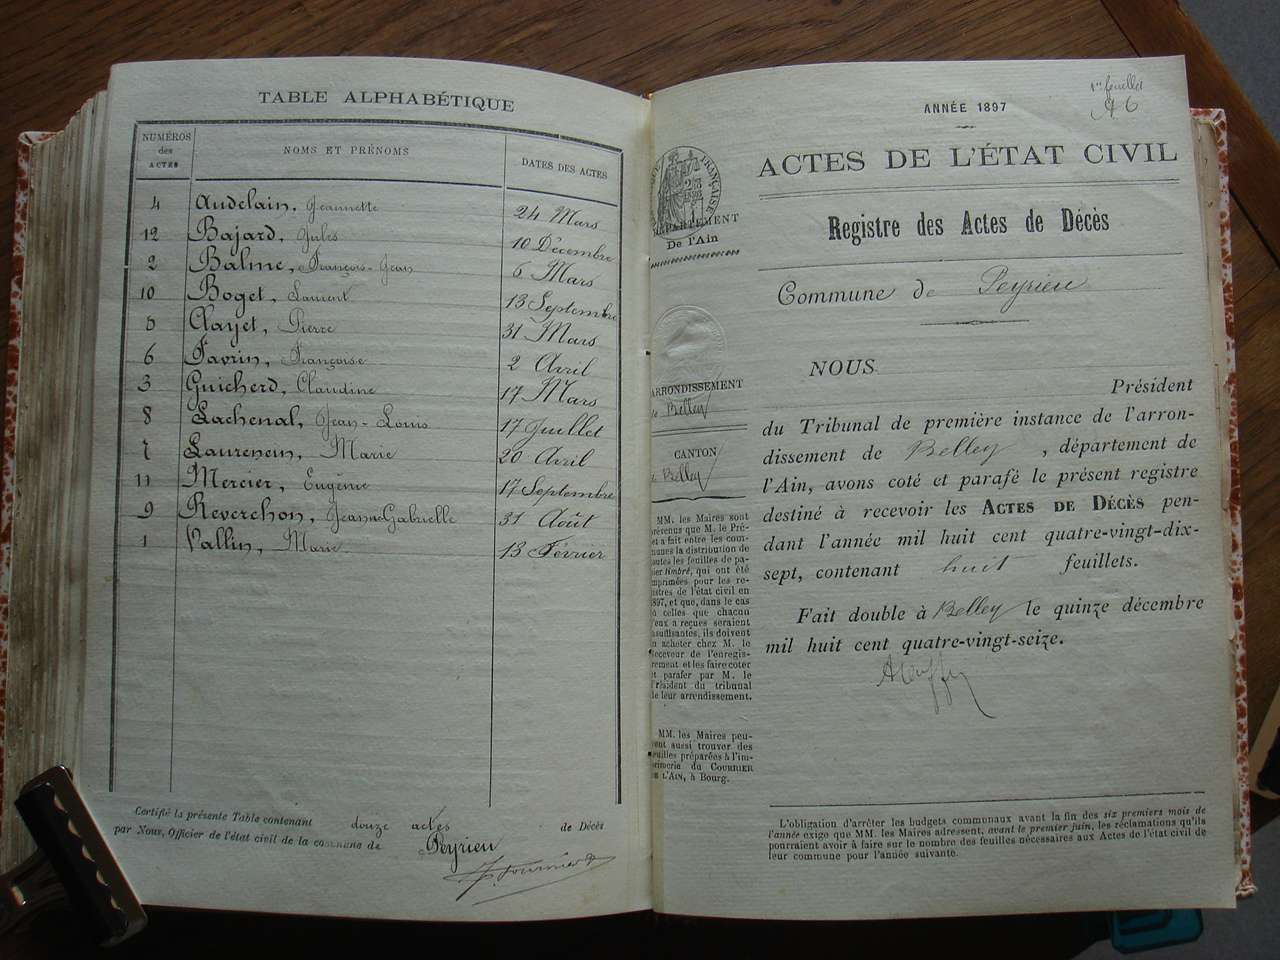 TABLE ALPHABÉTIQUE
NUMÉROS des ACTES NOMS ET PRÉNOMS DATES DES ACTES
4 Audelain, Jeannette 24 Mars
12 Bajard, Jules 10 Décembre
2 Balme, François-Jean 6 Mars
10 Boget, Laurent 13 Septembre
5 Clayet, Pierre 31 Mars
6 Favrin, Françoise 2 Avril
3 Guicherd, Claudine 17 Mars
8 Lachenal, Jean-Louis 17 Juillet
7 Laurencin, Marie 20 Avril
11 Mercier, Eugénie 17 Septembre
9 Reverchon, Jeanne Gabrielle 31 Août
1 Vallin, Marie 13 Février
Certifié la présente Table contenant douze actes de Décès
par Nous, Officier de l'état civil de la commune de Peyrieu
1er feuillet
ANNÉE 1897
ACTES DE L'ÉTAT CIVIL
FRANÇAISE
DÉPARTEMENT
De l'Ain
Registre des Actes de Décès
Commune de Peyrieu
ARRONDISSEMENT
Belley
CANTON
Belley
MM. les Maires sont
prévenus que M. le Pré-
et a fait entre les com-
munes la distribution de
toutes les feuilles de pa-
pier timbré, qui ont été
imprimées pour les re-
gistres de l'état civil en
1897, et que, dans le cas
où celles que chacun
d'eux a reçues seraient
insuffisantes, ils doivent
en acheter chez M. le
Receveur de l'enregis-
trement et les faire coter
et parafer par M. le
Président du tribunal
de leur arrendissement.
MM. les Maires peu-
vent aussi trouver des
feuilles préparées à l'im-
primerie du COURRIER
DE L'AIN, à Bourg.
NOUS
Président
du Tribunal de première instance de l'arron-
dissement de Belley, département de
l'Ain, avons coté et parafé le présent registre
destiné à recevoir les ACTES DE DÉCÈS pen-
dant l'année mil huit cent quatre-vingt-dix-
sept, contenant huit feuillets.
Fait double à Belley le quinze décembre
mil huit cent quatre-vingt-seize.
L'obligation d'arrêter les budgets communaux avant la fin des six premiers mois de
l'année exige que MM. les Maires adressent, avant le premier juin, les réclamations qu'ils
pourraient avoir à faire sur le nombre des feuilles nécessaires aux Actes de l'état civil de
leur commune pour l'année suivante.